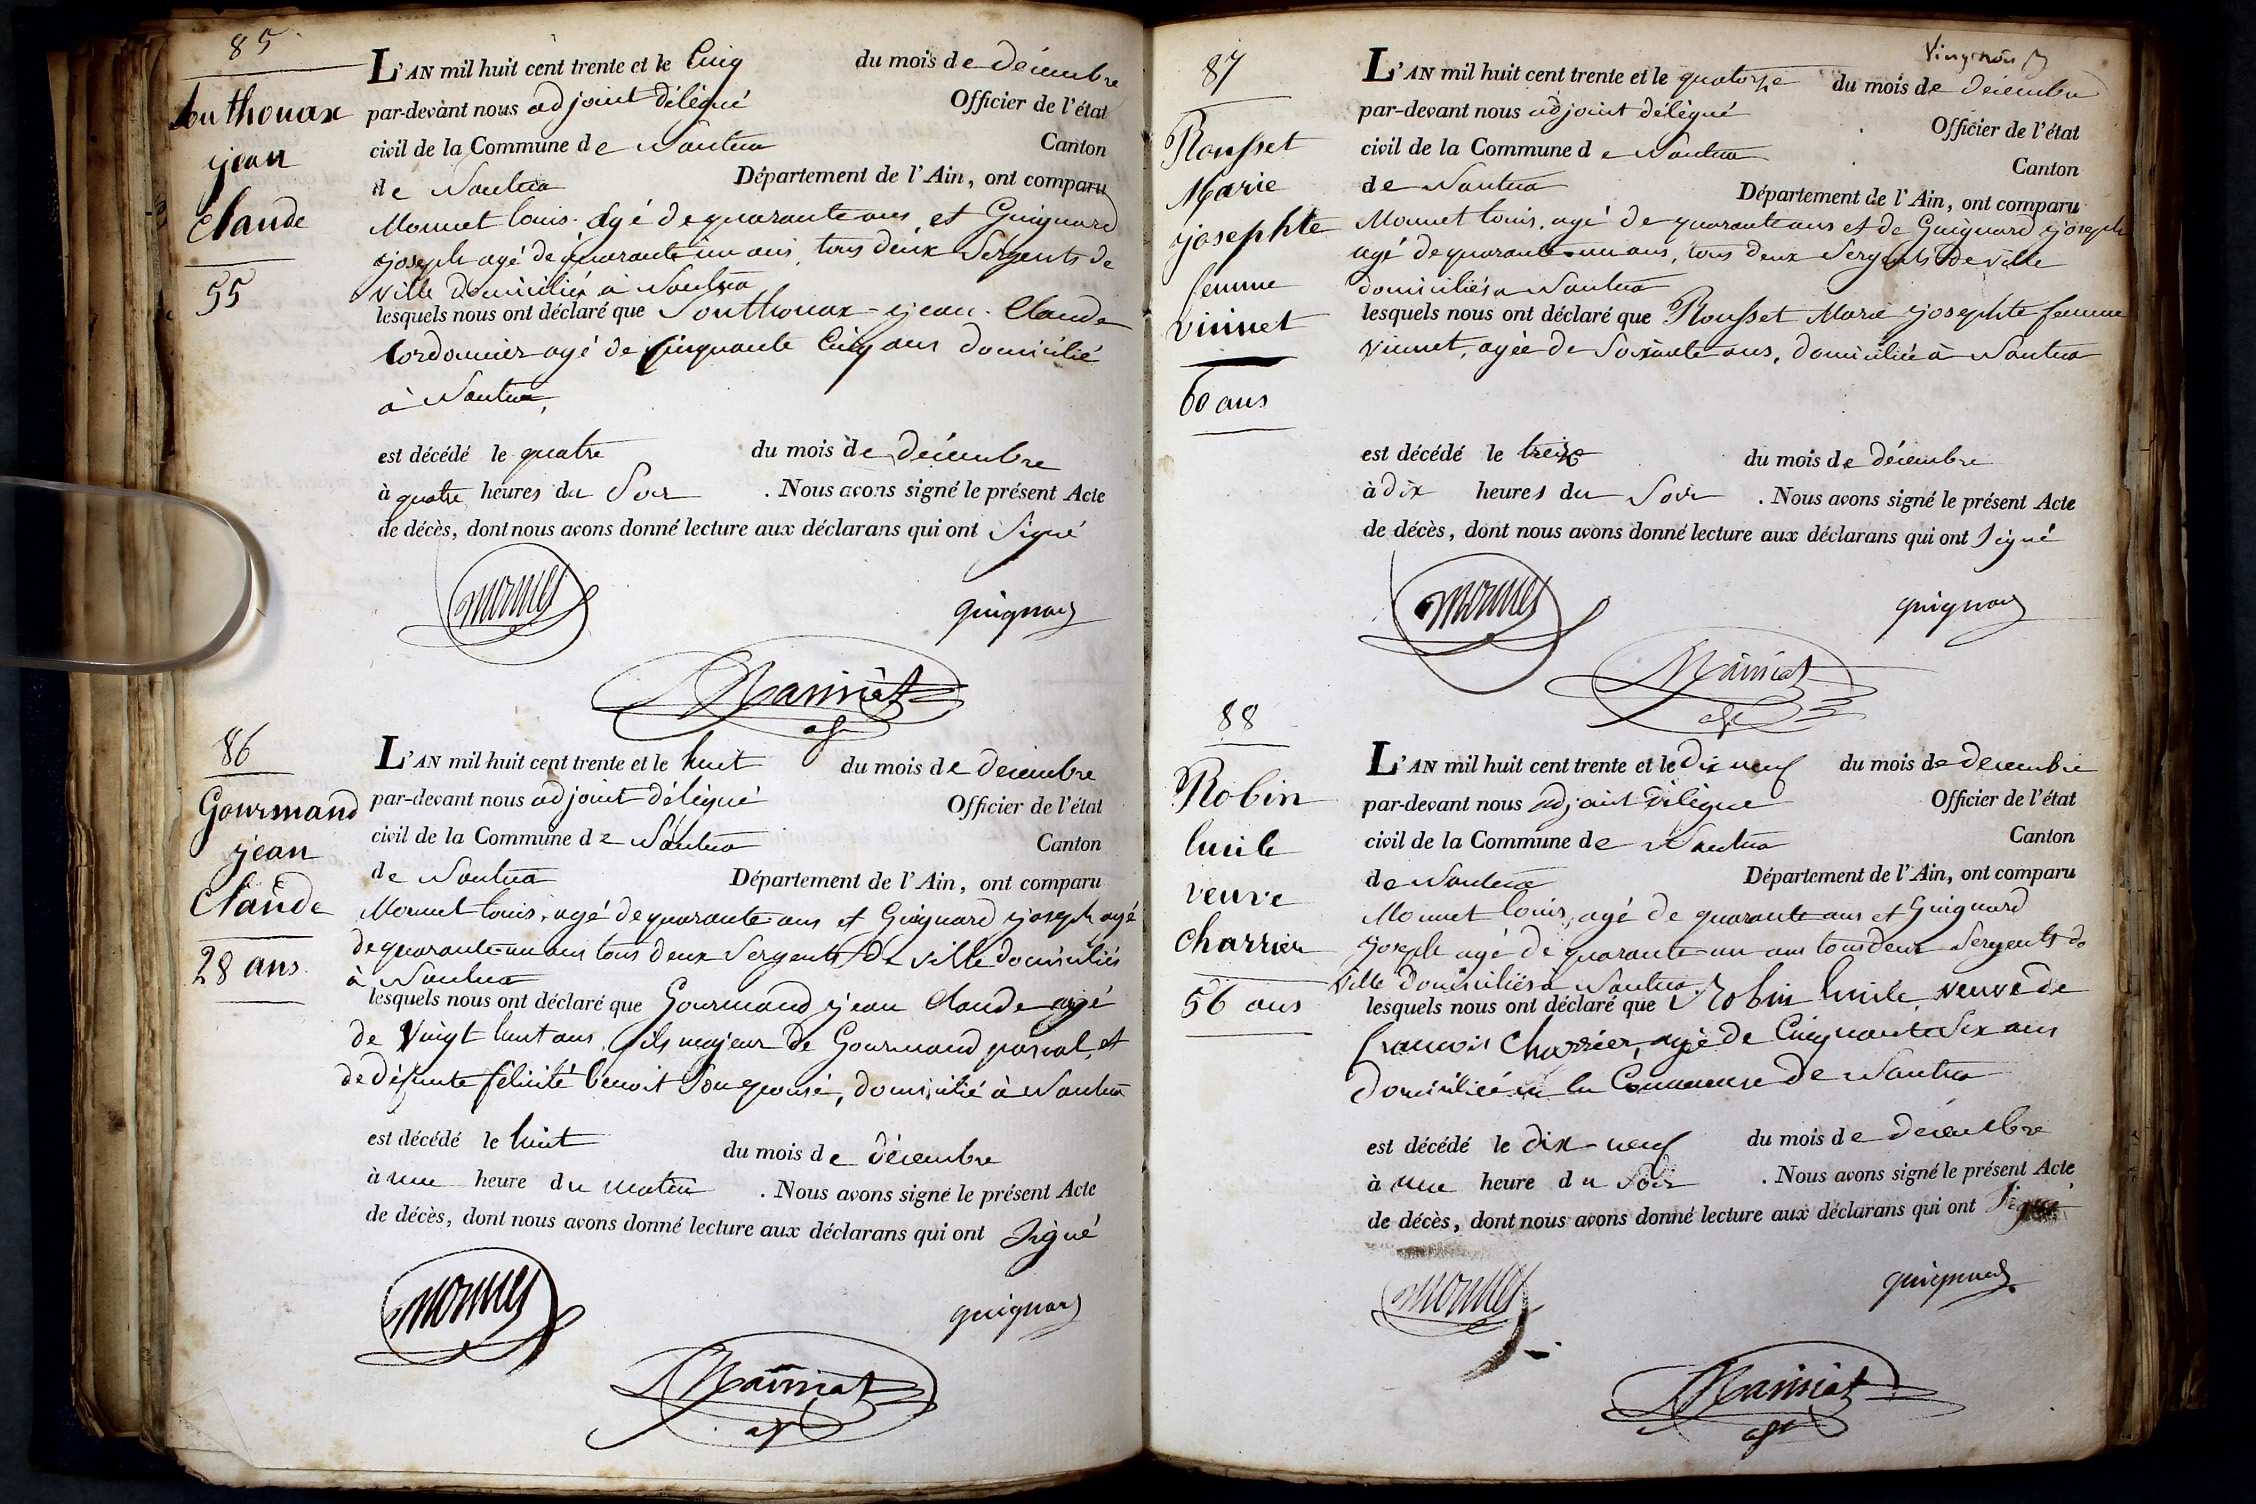 85
Southonax
jean
Claude
55
L'AN mil huit cent trente et le Cinq du mois de décembre
par-devant nous adjoint délégué Officier de l'état
civil de la Commune de Nantua Canton
de Nantua Département de l'Ain, ont comparu
Monnet louis. agé de quarante ans et Guignard
joseph agé de quarante un ans, tous deux Sergents de
ville domiciliés à Nantua
lesquels nous ont déclaré que Southonax jean Claude
Cordonnier agé de Cinquante Cinq ans domicilié
à Nantua,
est décédé le quatre du mois de décembre
à quatre heures du Soir . Nous avons signé le présent Acte
de décès, dont nous avons donné lecture aux déclarans qui ont Signé
monnet
guignard
86
Gourmand
jean
Claude
28 ans
L'AN mil huit cent trente et le huit du mois de decembre
par-devant nous adjoint délégué Officier de l'état
civil de la Commune de Nantua Canton
de Nantua Département de l'Ain, ont comparu
Monnet louis, agé de quarante ans et Guignard joseph agé
de quarante un ans tous deux Sergents de ville domiciliés
à Nantua
lesquels nous ont déclaré que Gourmand jean Claude agé
de Vingt huit ans, fils majeur de Gourmand pascal, et
de défunte félicité benoit Son epouse, domicilié à Nantua
est décédé le huit du mois de décembre
à une heure du matin . Nous avons signé le présent Acte
de décès, dont nous avons donné lecture aux déclarans qui ont Signé
monnet
guignard
87
Rousset
Marie
josephte
femme
Vinnet
60 ans
L'AN mil huit cent trente et le quatorze du mois de décembre
par-devant nous adjoint délégué Officier de l'état
civil de la Commune de Nantua Canton
de Nantua Département de l'Ain, ont comparu
Monnet louis, agé de quarante ans et de Guignard joseph
agé de quarante un ans, tous deux Sergents de ville
domiciliés a Nantua
lesquels nous ont déclaré que Rousset Marie josephte femme
agée de Soixante ans, domiciliée à Nantua
est décédé le treize du mois de décembre
à dix heures du Soir . Nous avons signé le présent Acte
de décès, dont nous avons donné lecture aux déclarans qui ont Signé
monnet
guignard
88
Robin
lucile
veuve
Charrier
56 ans
L'AN mil huit cent trente et le Dix neuf du mois de decembre
par-devant nous adjoint délégué Officier de l'état
civil de la Commune de Nantua Canton
de Nantua Département de l'Ain, ont comparu
Monnet louis, agé de quarante ans et Guignard
joseph agé de quarante un ans tous deux Sergents de
ville domiciliés à Nantua.
lesquels nous ont déclaré que Robin lucile veuve de
francois Charrier, agé de Cinquante Six ans
domiciliée en la Commune de Nantua
est décédé le dix-neuf du mois de décembre
à une heure du Soir . Nous avons signé le présent Acte
de décès, dont nous avons donné lecture aux déclarans qui ont Signé
monnet
guignard